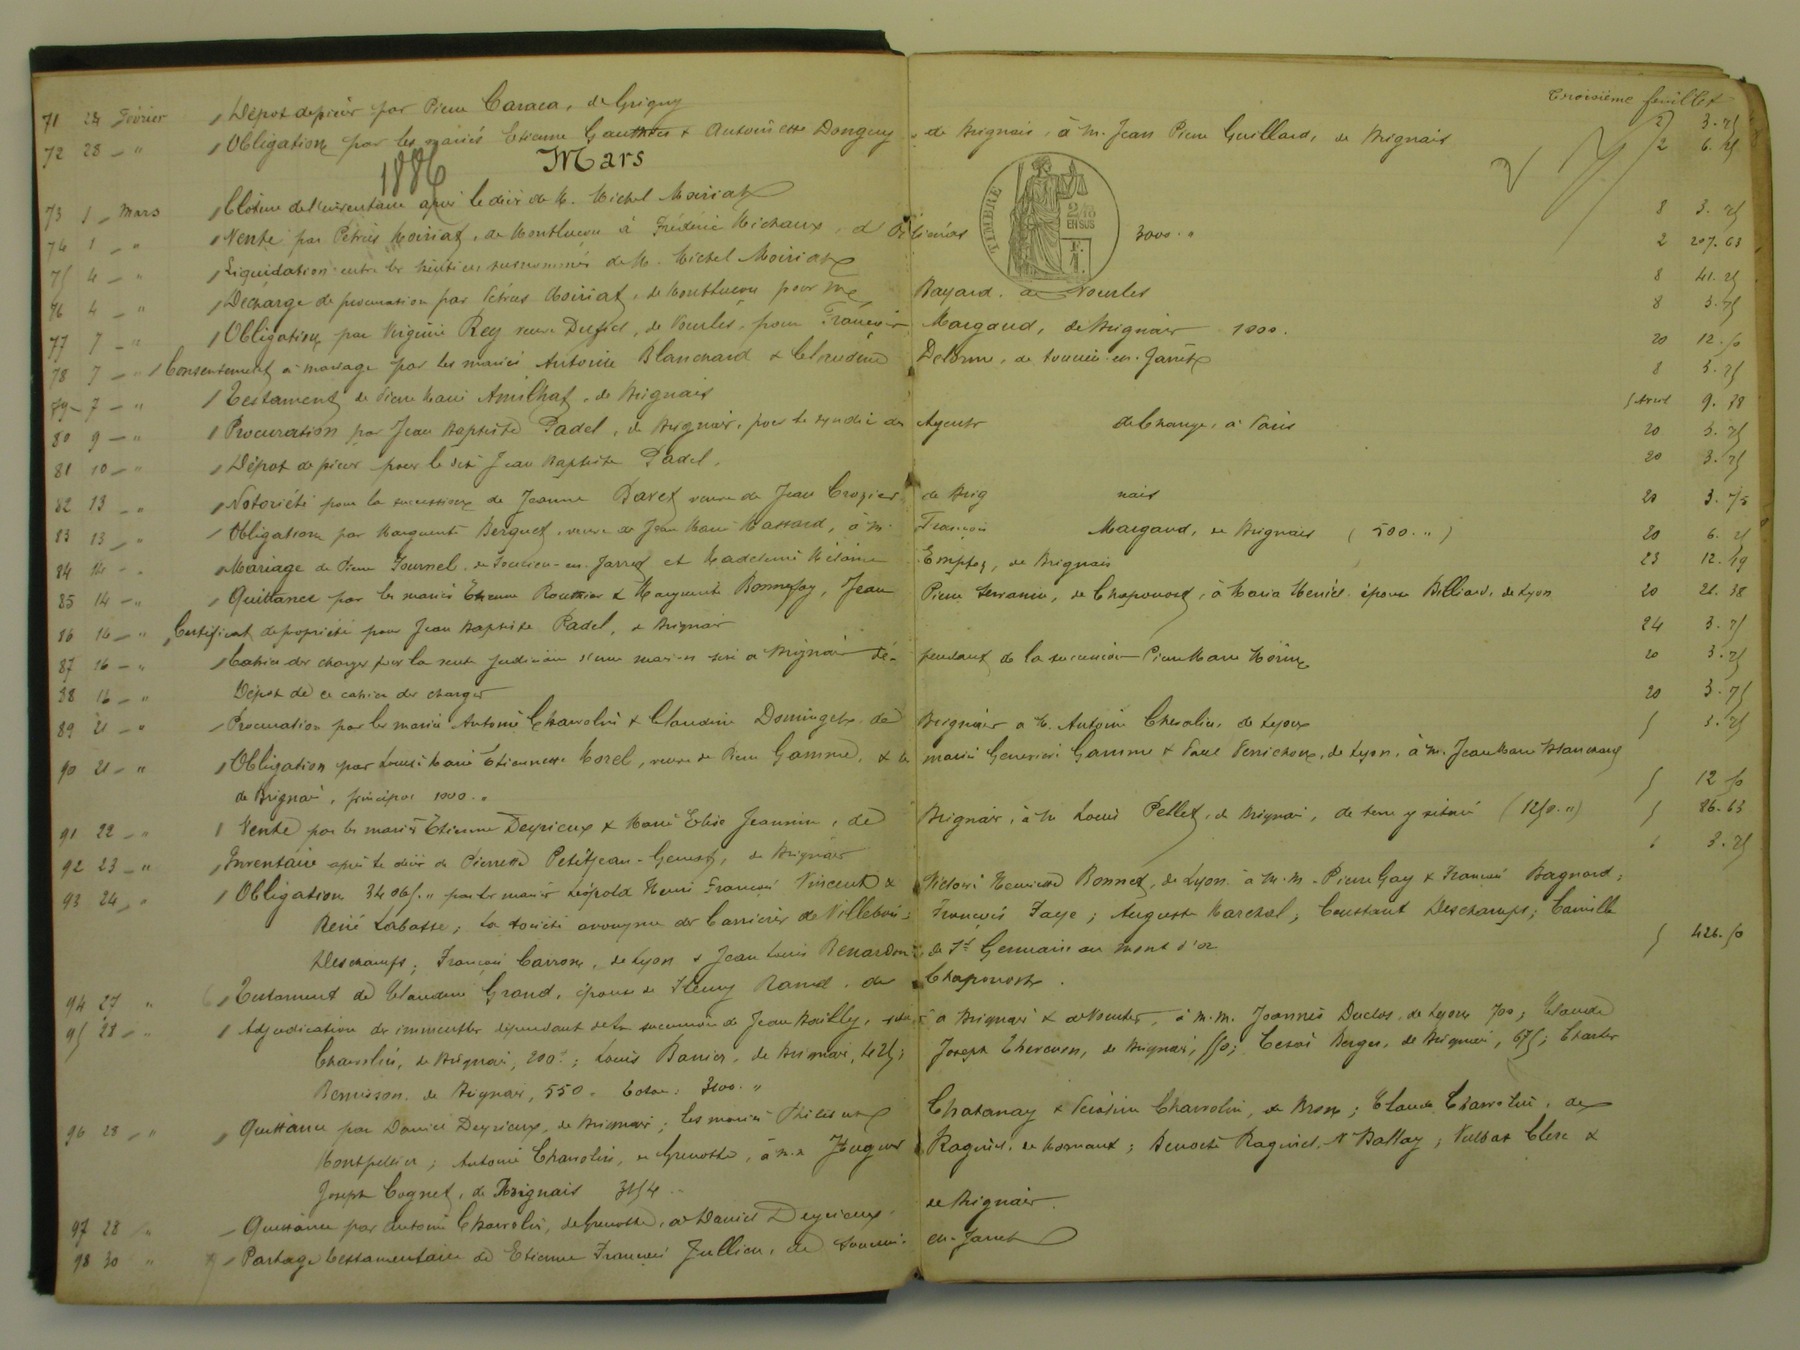 Troisième feuillet
71 24 Février Dépôt de pièces par Pierre Caraca, de Grigny 2 3.75
72 28 " Obligation par les mariés Etienne Gauthier & Antoinette Donguy, de Brignais, à M. Jean Pierre Guillard, de Brignais 2 6.25
1886 Mars
TIMBRE 2/10 EN SUS
73 1 Mars Clôture de l'inventaire après le décès de M. Michel Moiriat 8 3.75
74 1 " Vente par Pétrus Moiriat, de Montluçon à Frédéric Michaux, d' 3000." 2 207.63
75 4 " Liquidation entre les héritiers susnommés de M. Michel Moiriat 8 41.25
76 4 " Décharge de procuration par Pétrus Moiriat, de Montluçon pour Me Bayard, de Vourles 8 3.75
77 7 " Obligation par Virginie Rey veuve de Vourles, pour François Margaud, de Brignais 1000. 20 12.50
78 7 " Consentement à mariage par les mariés Antoine Blanchard & Claudine Delorme, de Soucieu-en-Jarrêt 8 3.75
79 7 " Testament de Pierre Marie Amilhat, de Brignais 9.38
80 9 " Procuration par Jean Baptiste Padel, de Brignais, pour le syndic des Agents de Change, à Paris 20 3.75
81 10 " Dépôt de pièces pour le dit Jean Baptiste Padel. 20 3.75
82 13 " Notoriété pour la succession de Jeanne Baret veuve de Jean Crozier, de Brignais 20 3.75
83 13 " Obligation par Marguerite Berguet, veuve de Jean Marie Massard, à M. François Margaud, de Brignais (500.") 20 6.25
84 14 " Mariage de Pierre Fournel, de Soucieu-en-Jarret et Madeleine Emptoz, de Brignais 23 12.19
85 14 " Quittance par les mariés Etienne Routhier & Marguerite Bonnefoy, Jean Pierre de Chaponost, à Maria épouse Billiard, de Lyon 20 21.38
86 16 " Certificat de propriété pour Jean Baptiste Padel, de Brignais 24 3.75
87 16 " Cahier des charges pour la vente judiciaire d'une maison sise à Brignais dépendant de la succession Pierre Marie 20 3.75
88 16 " Dépôt de ce cahier des charges 20 3.75
89 21 " Procuration par les mariés Antoine Charrolin & Claudine Dominget, de Brignais à M. Antoine Chevalier de Lyon 5 3.75
90 21 " Obligation par Louise Marie Etiennette Morel, veuve de Pierre Gamme, & les mariés Geneviève Gamme & Paul Perrichon, de Lyon, à M. Jean Marie Blanchard
de Brignais, principal 1000." 5 12.50
91 22 " Vente par les mariés Etienne Deyrieux & Marie Elise Jeannin, de Brignais, à M. Louis Pellet, de Brignais, de terre y située (1250.") 5 86.63
92 23 " Inventaire après le décès de Pierrette Petitjean-Genest, de Brignais 3.75
93 24 " Obligation par les mariés Léopold Henri François Vincent & Victoire Henriette Bonnet, de Lyon à M.M. Pierre Gay & François Bagnard;
René Labasse; la société anonyme des Carrières de Villebois; François Faye; Auguste Marchal; Constant Deschamps; Camille
Deschamps; François Carron, de Lyon & Jean Louis Renardon; de St Germain au Mont d'or 5 426.50
94 27 " Testament de Claudine Grand, épouse de Fleury de Chaponost.
95 28 " Adjudication des immeubles dépendant de la succession de Jean Bouilly, situés à Brignais & à Vourles, à M.M. Joannès Duclos, de Lyon 700; Claude
Charrolin, de Brignais, 200; Louis Banier, de Brignais, 425; Joseph Thevenon, de Brignais, 550; César Berger, de Brignais, 675; Charles
de Brignais, 550. Total: 3100."
96 28 " Quittance par Daniel Deyrieux, de Brignais; les mariés Philibert Chatanay & Charrolin, de Bron; Claude Charrolin, de
Montpellier; Antoine Charrolin, de Grenoble, à M.M. Raguiel, de Mornant; Benoît Raguiel; Ballay; Clerc &
Joseph Cognet, de Brignais 3154
97 28 " Quittance par Antoine Charrolin, de Grenoble, à Daniel Deyrieux, de Brignais.
98 30 " Partage testamentaire de Etienne François Jullien, de Soucieu-en-Jarret